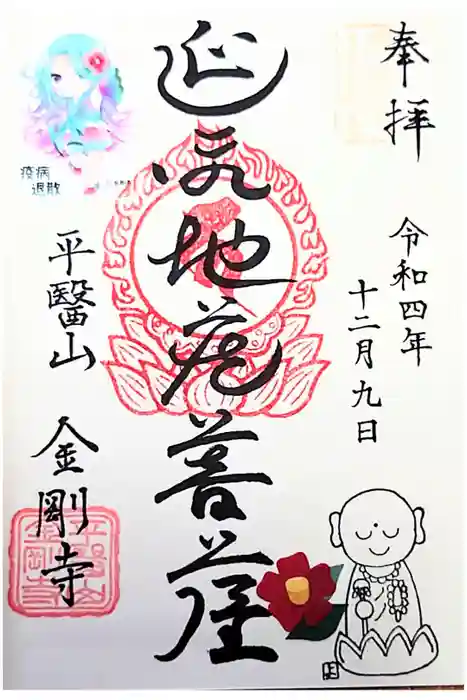 奉拝
令和四年
十二月九日
延命地蔵菩薩
平醫山
金剛寺
疫病
退散